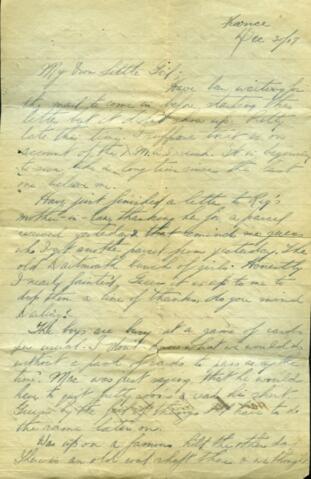 France
Dec 31/17
My Own Little Girl;
Have been waiting for
the mail to come in before starting this
letter but it didn't show up. Pretty
late this time. I suppose it is on
account of the Xmas rush. It is beginning
to seem like a long time since the last
one believe me.
Have just finished a letter to Reg's
mother-in-law thanking her for a parcel
received yesterday & that reminds me guess
who I got another parcel from yesterday. The
old Dartmouth bunch of girls. Honestly
I nearly fainted. Guess it is up to me to
drop them a line of thanks. Do you mind
Darling?
The boys are busy at a game of cards
as usual. I don't know what we would do
without a pack of cards to pass away the
time. Mac was just saying that he would
have to quit pretty soon &
Guess by the
the same later on.
Was up on a famous Hill the other day
There is an old shaft there & we thought